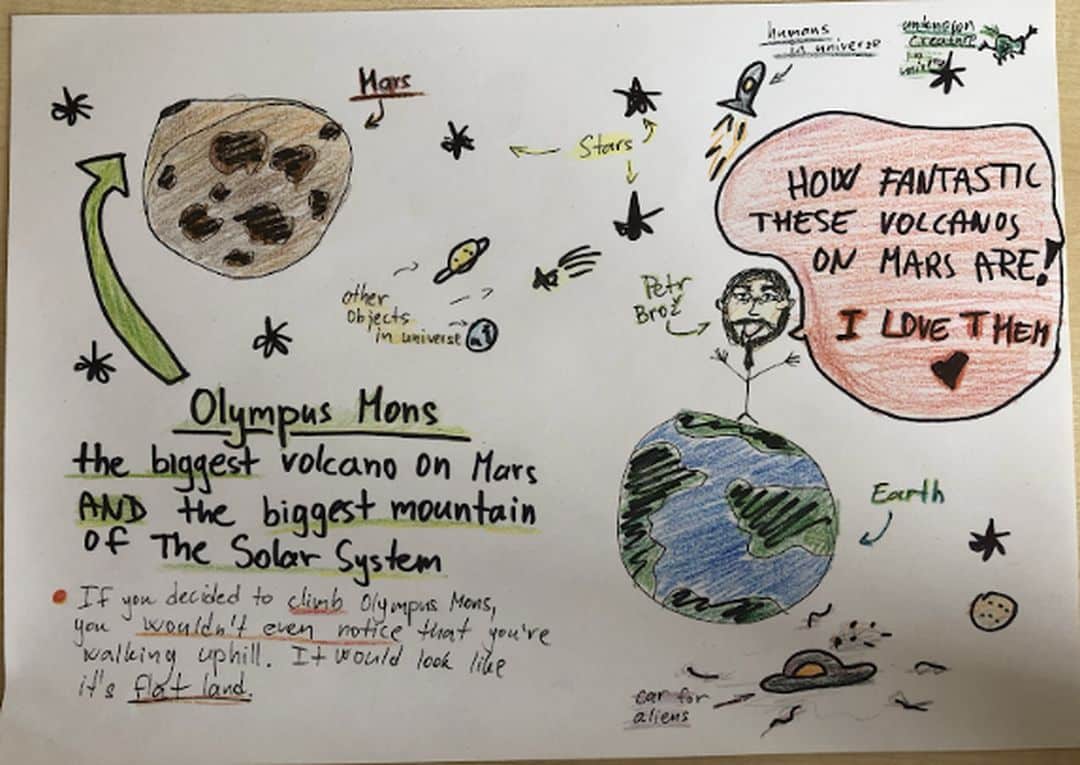 humans
in universe
unknown
creature
in
Mars
Stars
HOW FANTASTIC
THESE VOLCANOS
ON MARS ARE!
I LOVE THEM
Petr
Brož
other
objects
in universe
Olympus Mons
the biggest volcano on Mars
AND the biggest mountain
of The Solar System
Earth
If you decided to climb Olympus Mons,
you wouldn't even notice that you're
walking uphill. It would look like
it's flat land.
car for
aliens